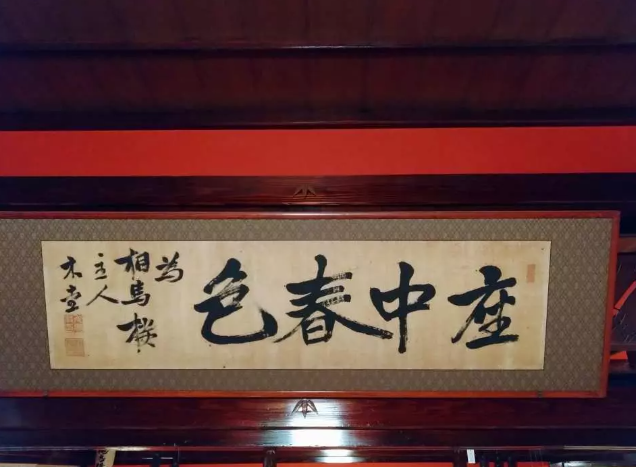 座中春色
為
相馬樓
主人
木堂